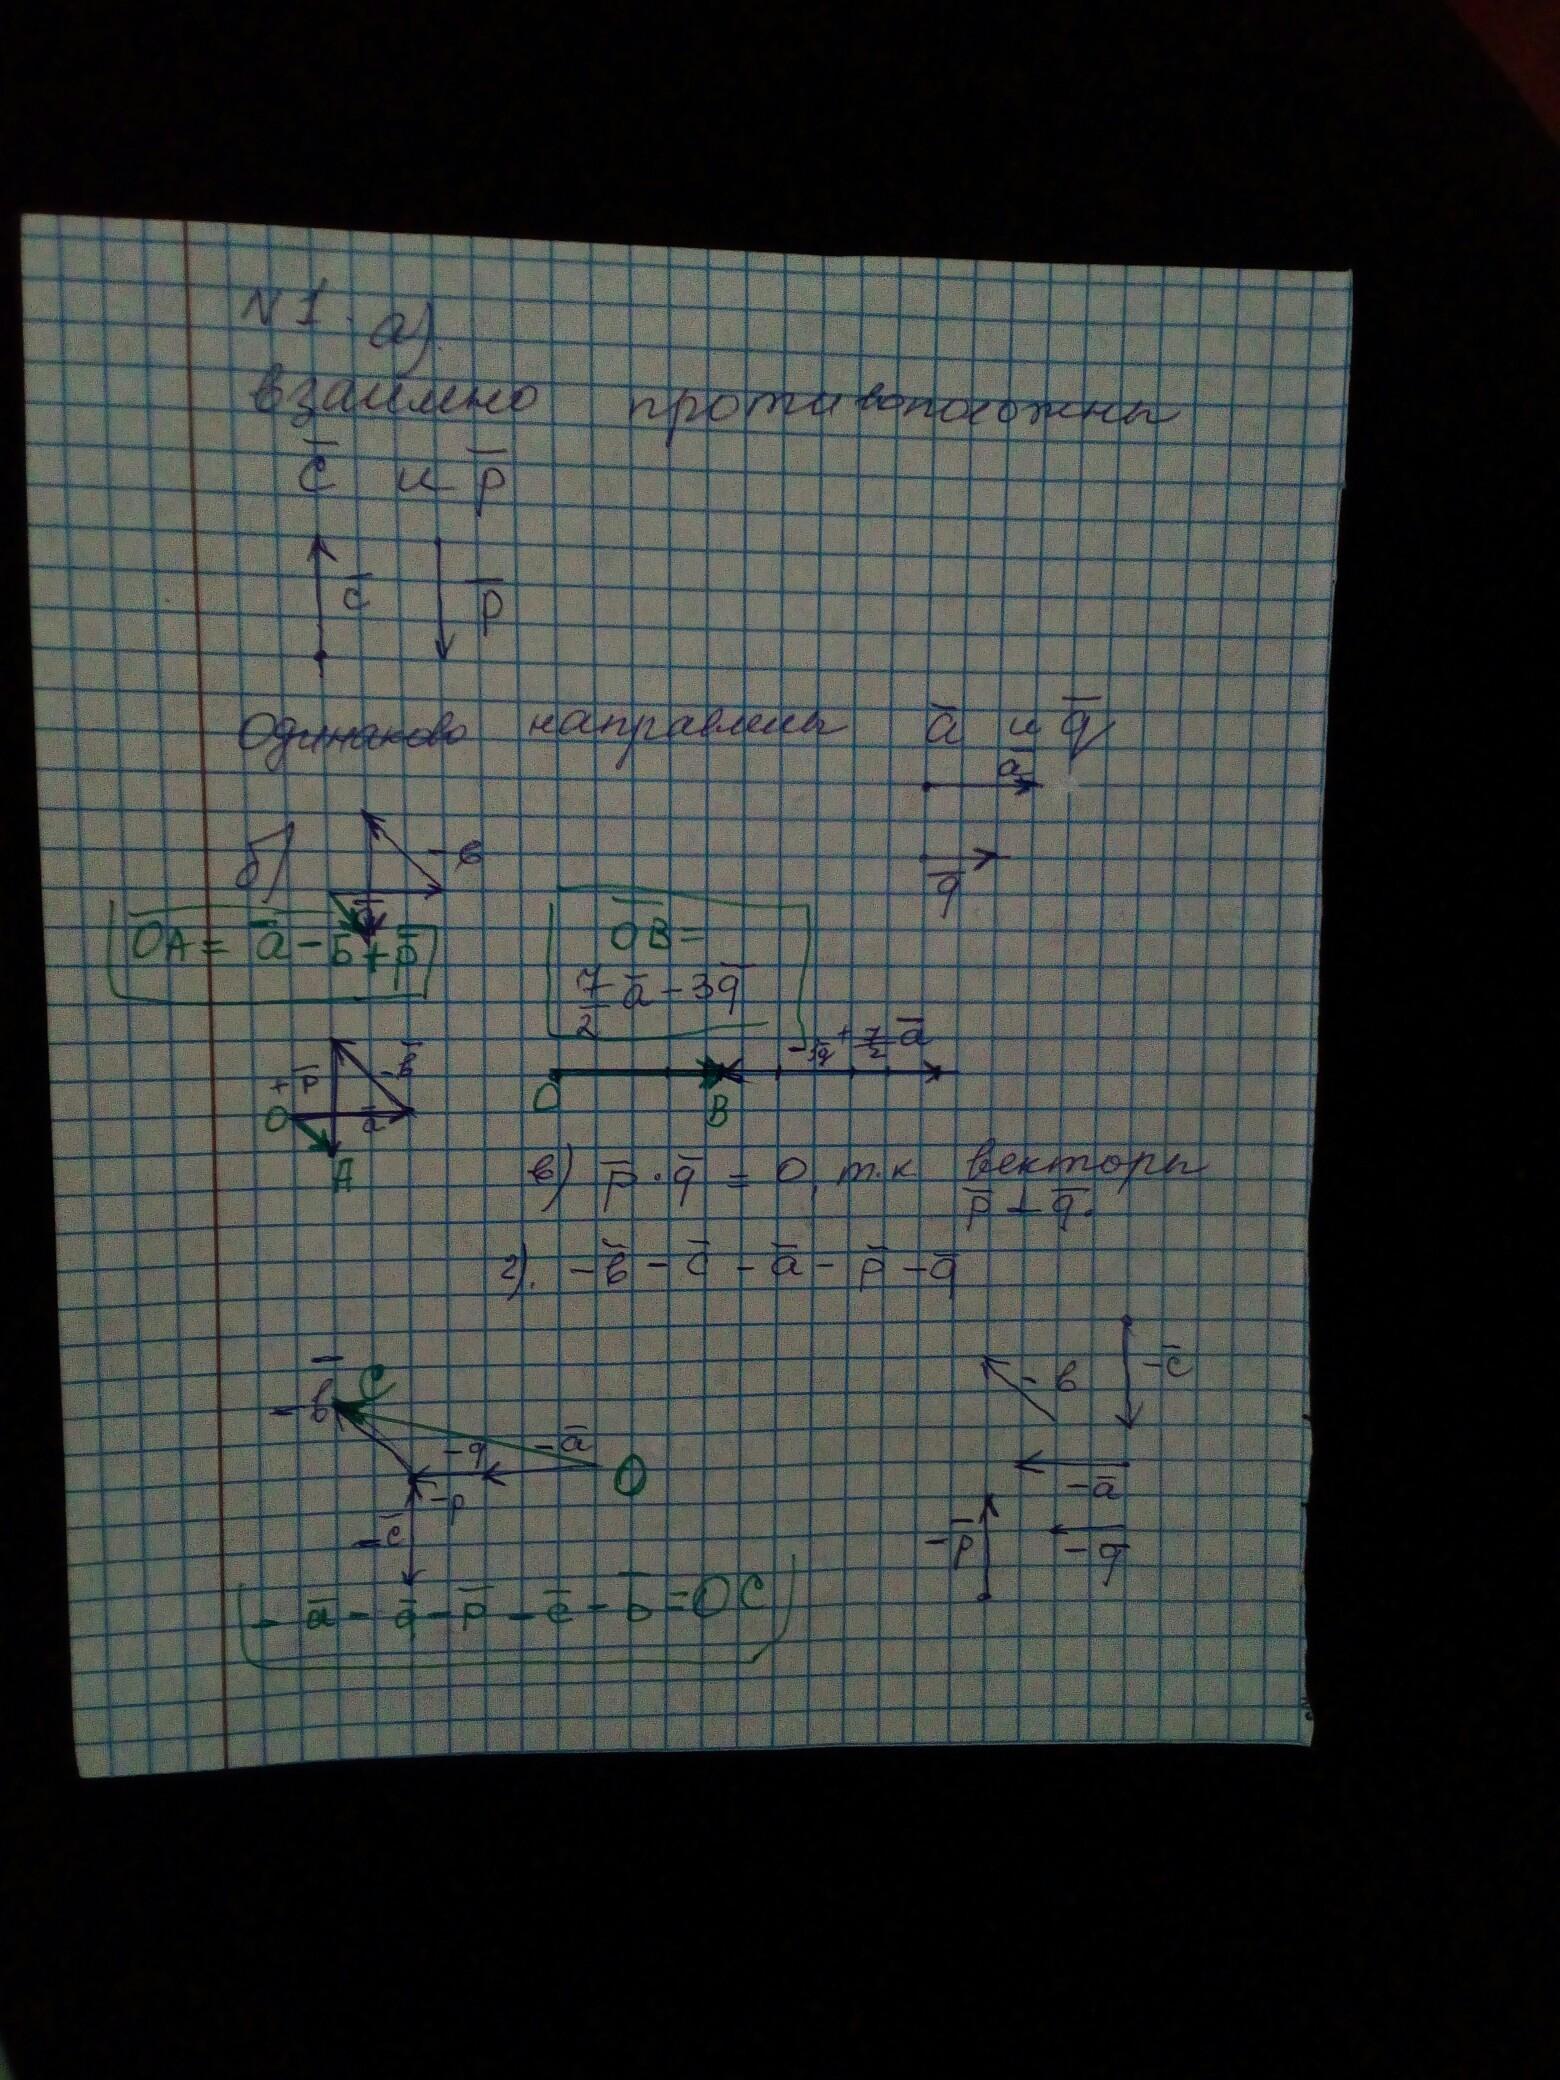 N1. а).
взаимно противоположны
c̅ и p̅
c̅ p̅
Одинаково направлены a̅ и q̅
a̅
q̅
б) -в
O̅A̅ = a̅ - b̅ + p̅
O̅B̅ =
7/2 a̅ - 3q̅
-3q̅ + 7/2 a̅
+p̅ -в̅
O a̅
A
O B
в) p̅ · q̅ = 0, т.к векторы
p̅ ⊥ q̅.
г). -в̅ - c̅ - a̅ - p̅ - q̅
-в̅ C
-q -a̅ O
-p
-c̅
-в -c̅
-a̅
-p̅ -q̅
- a̅ - q̅ - p̅ - c̅ - b̅ = OC